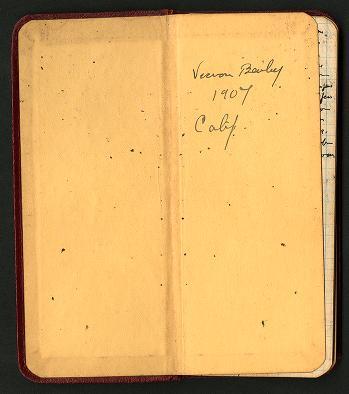 Vernon Bailey
1907
Calif.